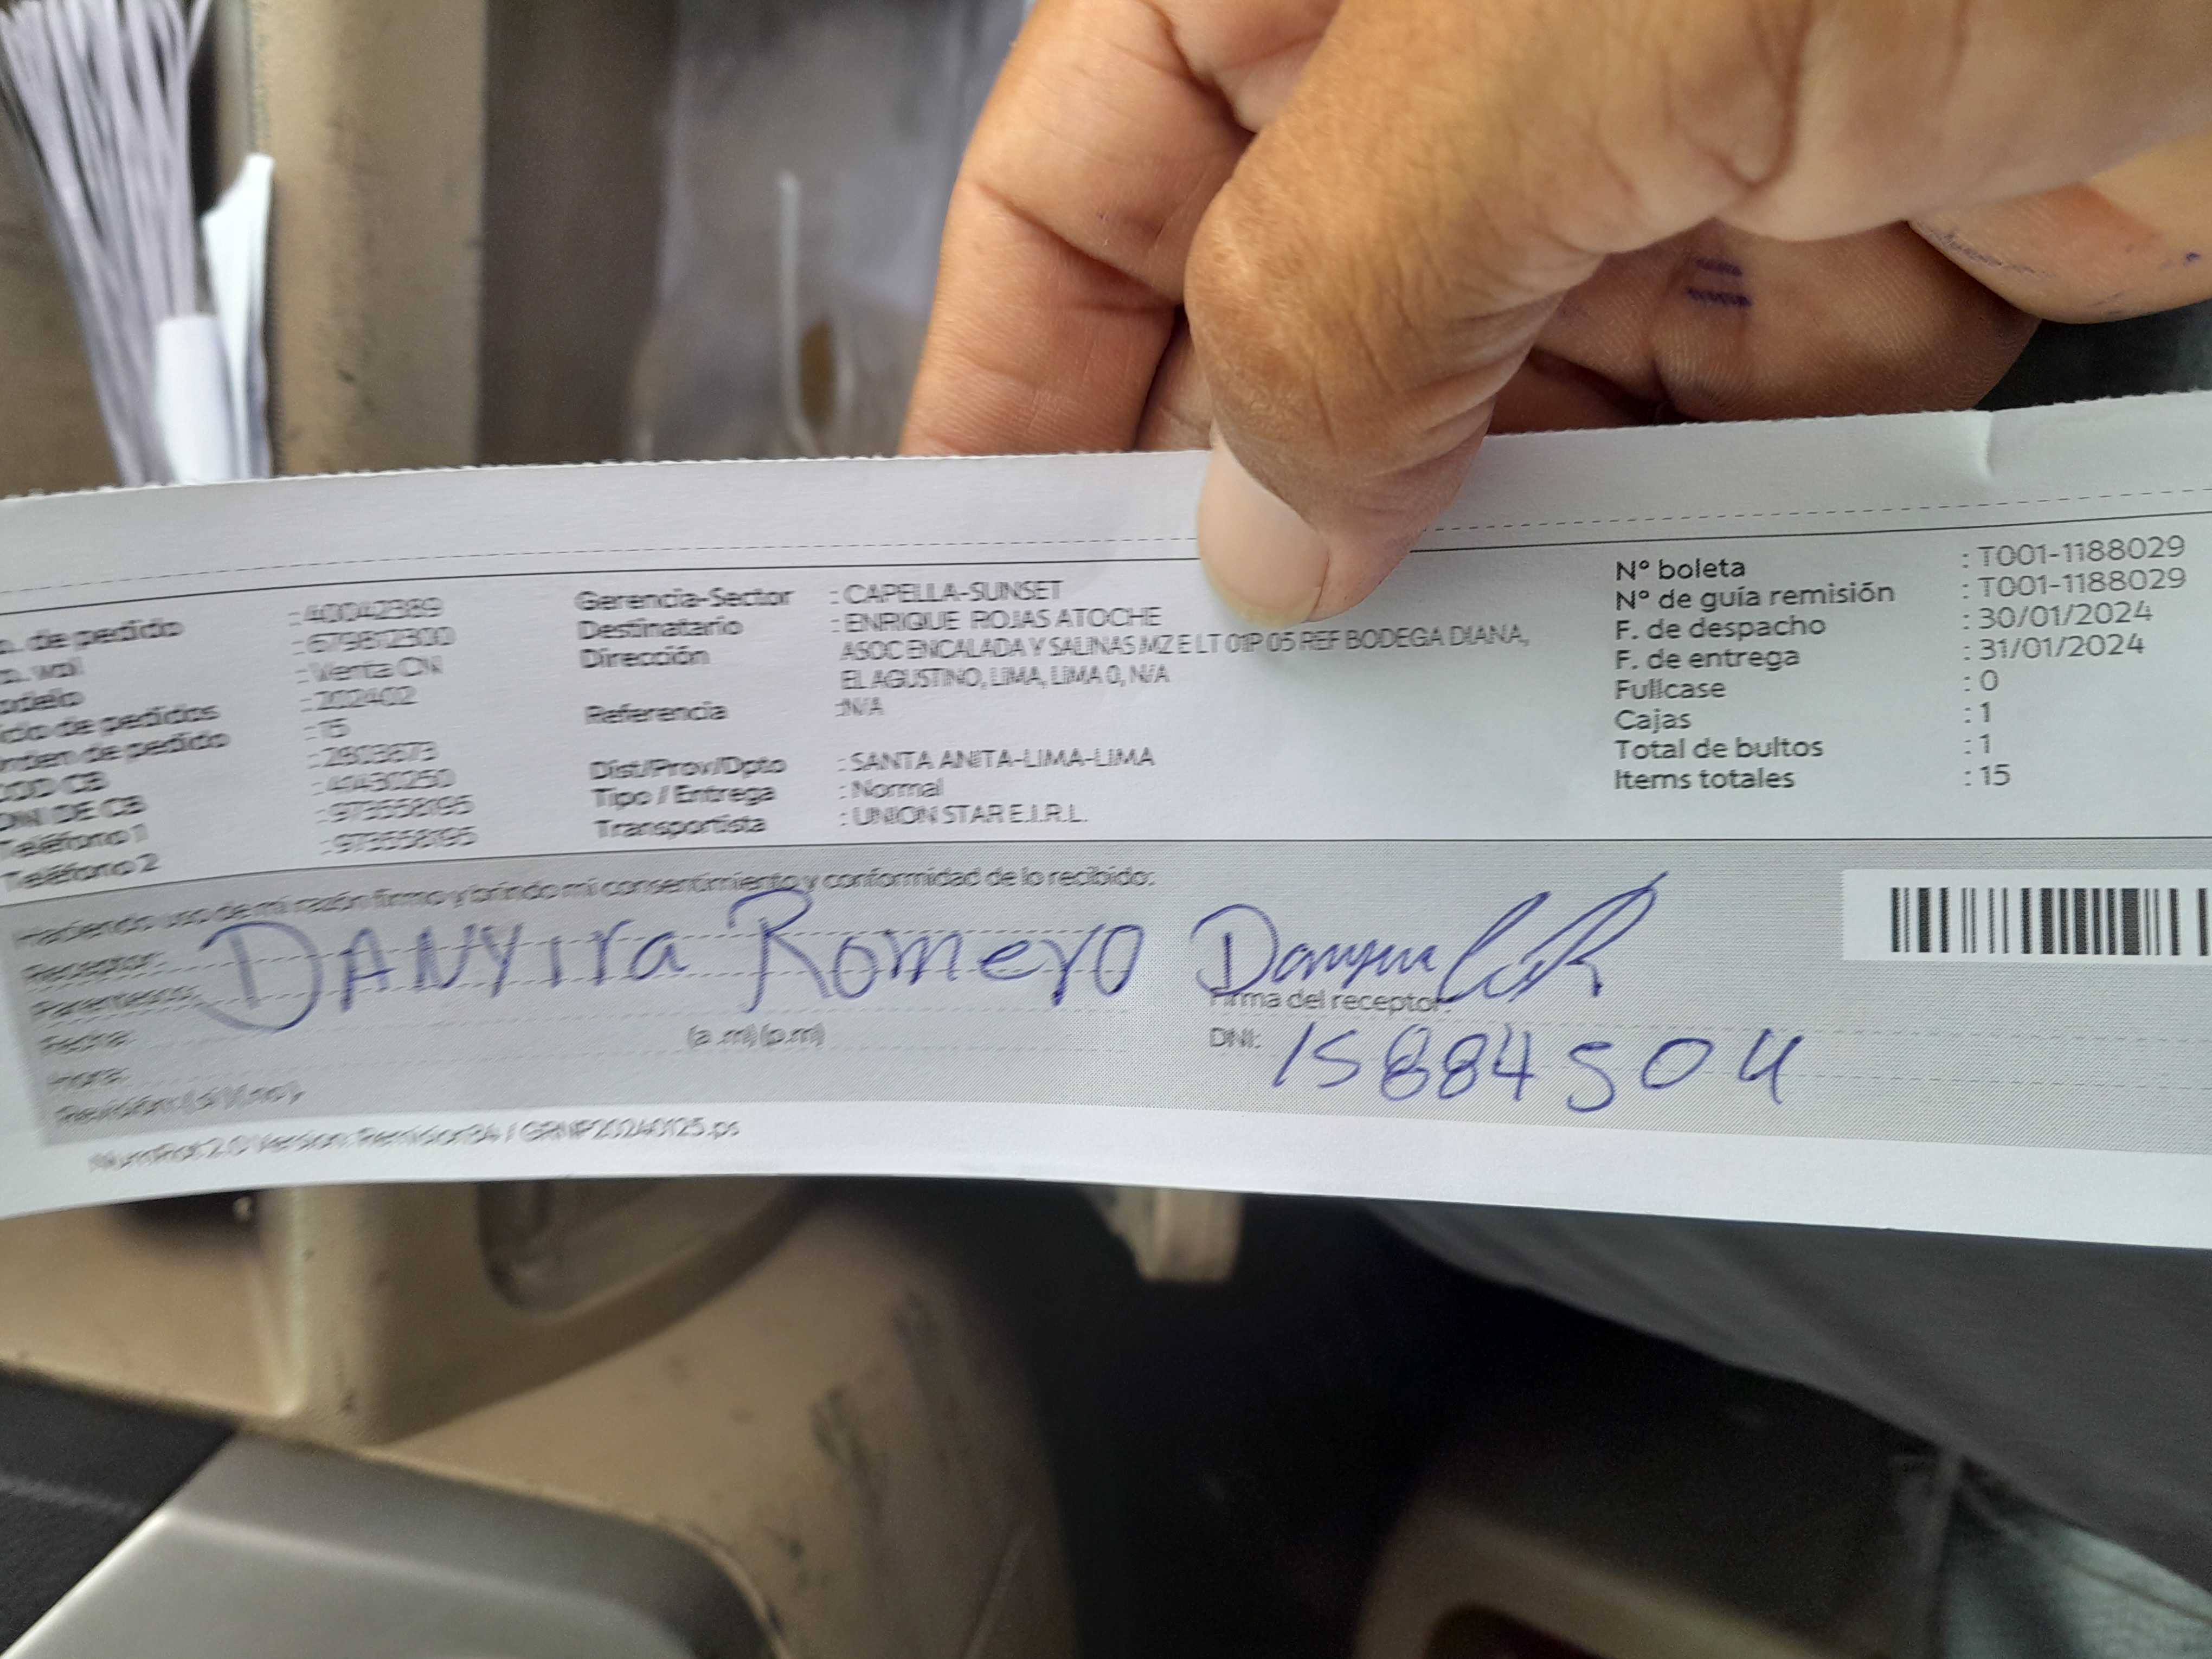 de pedido : 40042389
: 679812300
: Venta CN
de pedidos : 202402
de pedido : 15
: 2803673
DNI DE CB : 41430250
Teléfono 1 : 973558195
Teléfono 2 : 973558195
Gerencia-Sector : CAPELLA-SUNSET
Destinatario : ENRIQUE ROJAS ATOCHE
Dirección ASOC ENCALADA Y SALINAS MZ E LT 01P 05 REF BODEGA DIANA,
EL AGUSTINO, LIMA, LIMA 0, N/A
Referencia :N/A
Dist/Prov/Dpto : SANTA ANITA-LIMA-LIMA
Tipo / Entrega : Normal
Transportista : UNION STAR E.I.R.L.
N° boleta : T001-1188029
N° de guía remisión : T001-1188029
F. de despacho : 30/01/2024
F. de entrega : 31/01/2024
Fullcase : 0
Cajas : 1
Total de bultos : 1
Items totales : 15
Haciendo uso de mi razón firmo y brindo mi consentimiento y conformidad de lo recibido:
Receptor: DANYIra Romero
Parentesco:
Fecha:
Hora: (a .m) (p.m)
Firma del receptor:
DNI: 15884504